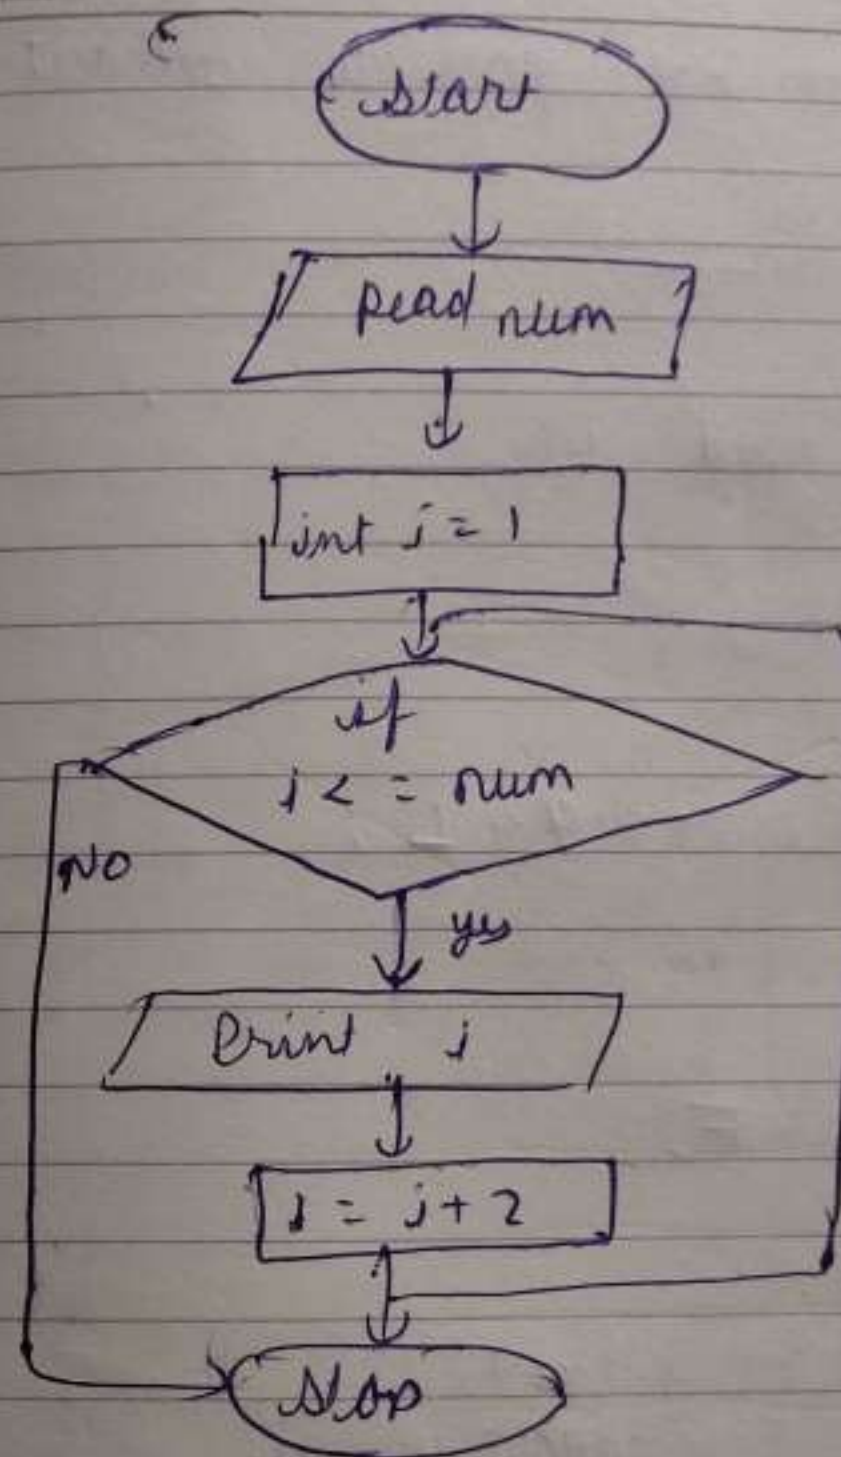 Start
Read num
int i = 1
if
i < = num
NO
yes
Print i
i = i + 2
Stop